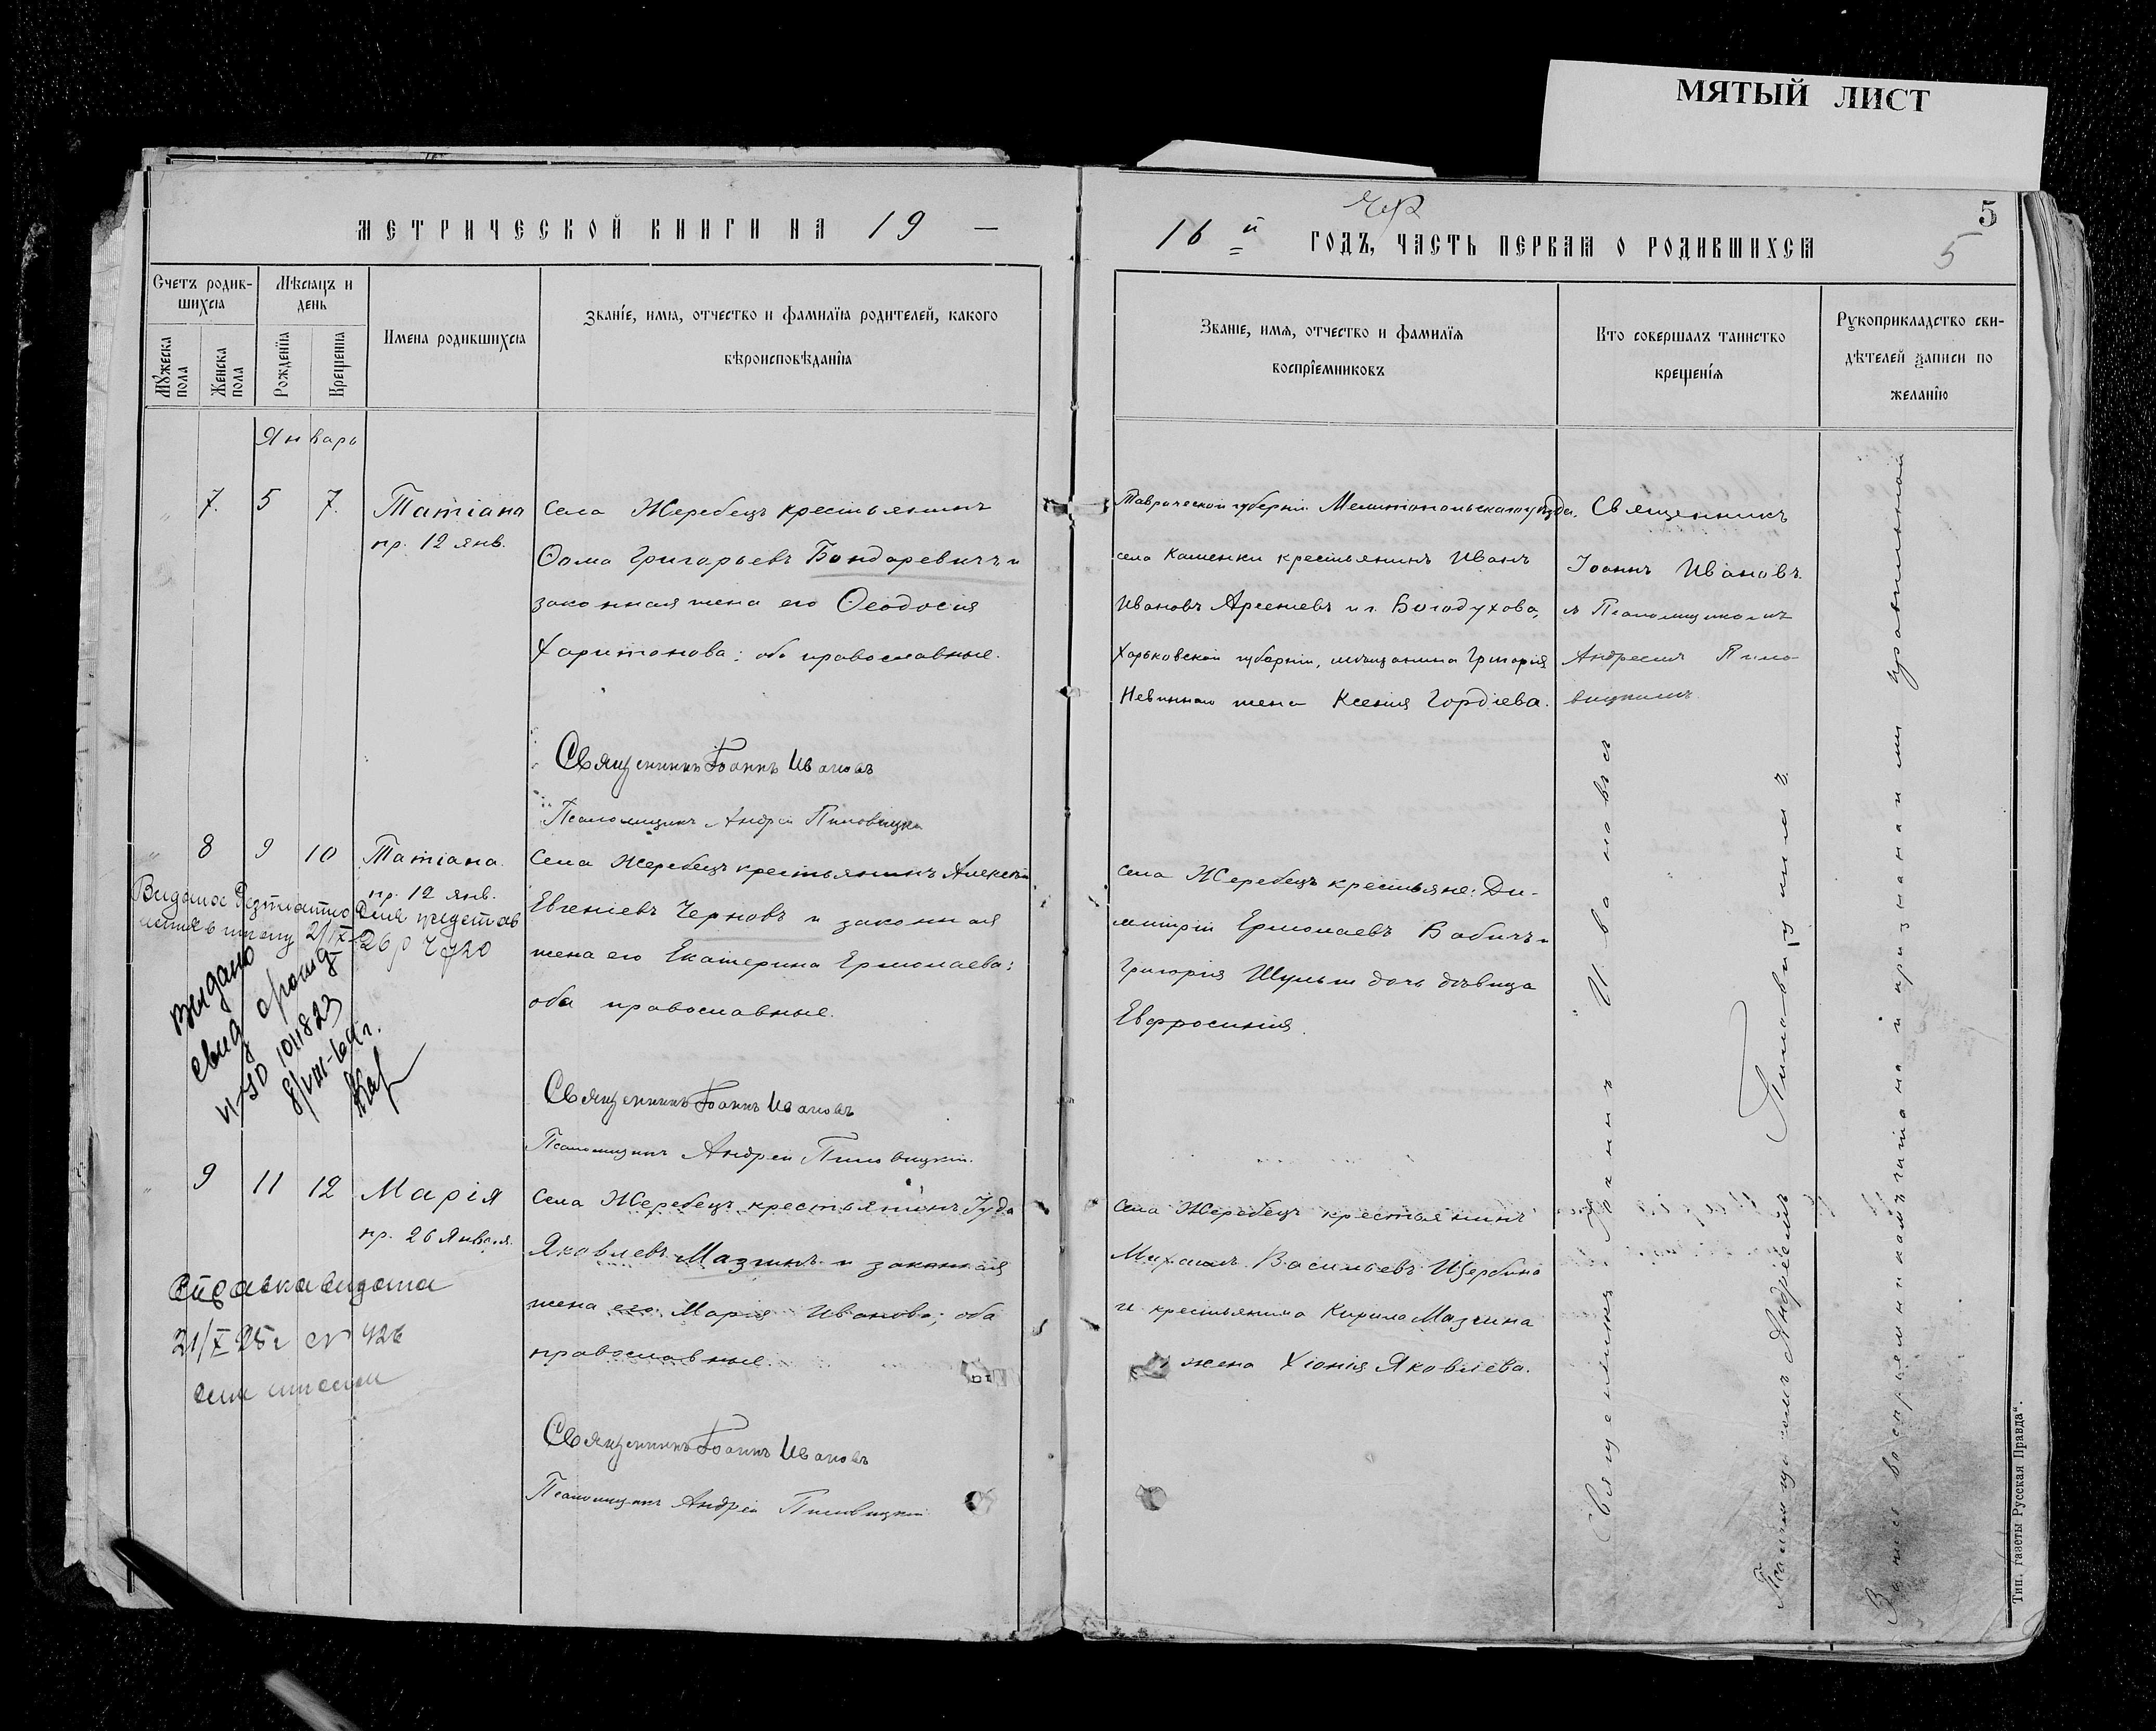 МЯТЫЙ ЛИСТ
5
5
МЕТРИЧЕСКОЙ КНИГИ НА 19 —
16й ГОДЪ, ЧАСТЬ ПЕРВАЯ О РОДИВШИХСЯ
Счетъ родив-
шихся
Мѣсяцъ и
день
Имена родившихся
Званіе, имя, отчество и фамилія родителей, какого
вѣроисповѣданія
Мужеска
пола
Женска
пола
Рожденія
Крещенія
Званіе, имя, отчество и фамилія
воспріемниковъ
Кто совершалъ таинство
крещенія
Рукоприкладство сви-
дѣтелей записи по
желанію
Январь
7. 5 7. Татіана
пр. 12 янв.
Села Жеребецъ крестьянинъ
Ѳома Григорьевъ Бондаревичъ и
законная жена его Ѳеодосія
Харитонова: оба православные.
Таврической губерніи Мелитопольскаго уѣзда,
села Каменки крестьянинъ Иванъ
Ивановъ Арсеніевъ и г. Богодухова,
Харьковской губерніи, мѣщанина Григорія
Невиннаго жена Ксенія Гордіева.
Священникъ
Іоаннъ Ивановъ
съ Псаломщикомъ
Андреемъ Пило-
вицкимъ
Священникъ Іоаннъ Ивановъ
Псаломщикъ Андрей Пиловицкій
8 9 10 Татіана.
пр. 12 янв.
Села Жеребецъ крестьянинъ Алексѣй
Евгеніевъ Черновъ и законная
жена его Екатерина Ермолаева:
оба православные.
Села Жеребецъ крестьяне: Ди-
митрій Ермолаевъ Бабичъ и
Григорія Шульги дочь дѣвица
Евфросинія.
Выдано
свид о рожд
101823
8/VIII-60г.
Священникъ Іоаннъ Ивановъ
Псаломщикъ Андрей Пиловицкій.
9 11 12 Марія
пр. 26 Января.
Села Жеребецъ крестьянинъ Іуда
Яковлевъ Мазгинъ и законная
жена его Марія Иванова; оба
православные.
Села Жеребецъ крестьянинъ
Михаилъ Васильевъ Щербина
и крестьянина Кирила Мазгина
жена Хіонія Яковлева.
Справка видана
21/X 25г № 426
Священникъ Іоаннъ Ивановъ
Псаломщикъ Андрей Пиловицкій
Священникъ Іоаннъ Ивановъ
Псаломщикомъ Андреемъ Пиловицкимъ
Запись воспріемникамъ читана и признана ими правильной
Тип. газеты „Русская Правда“.